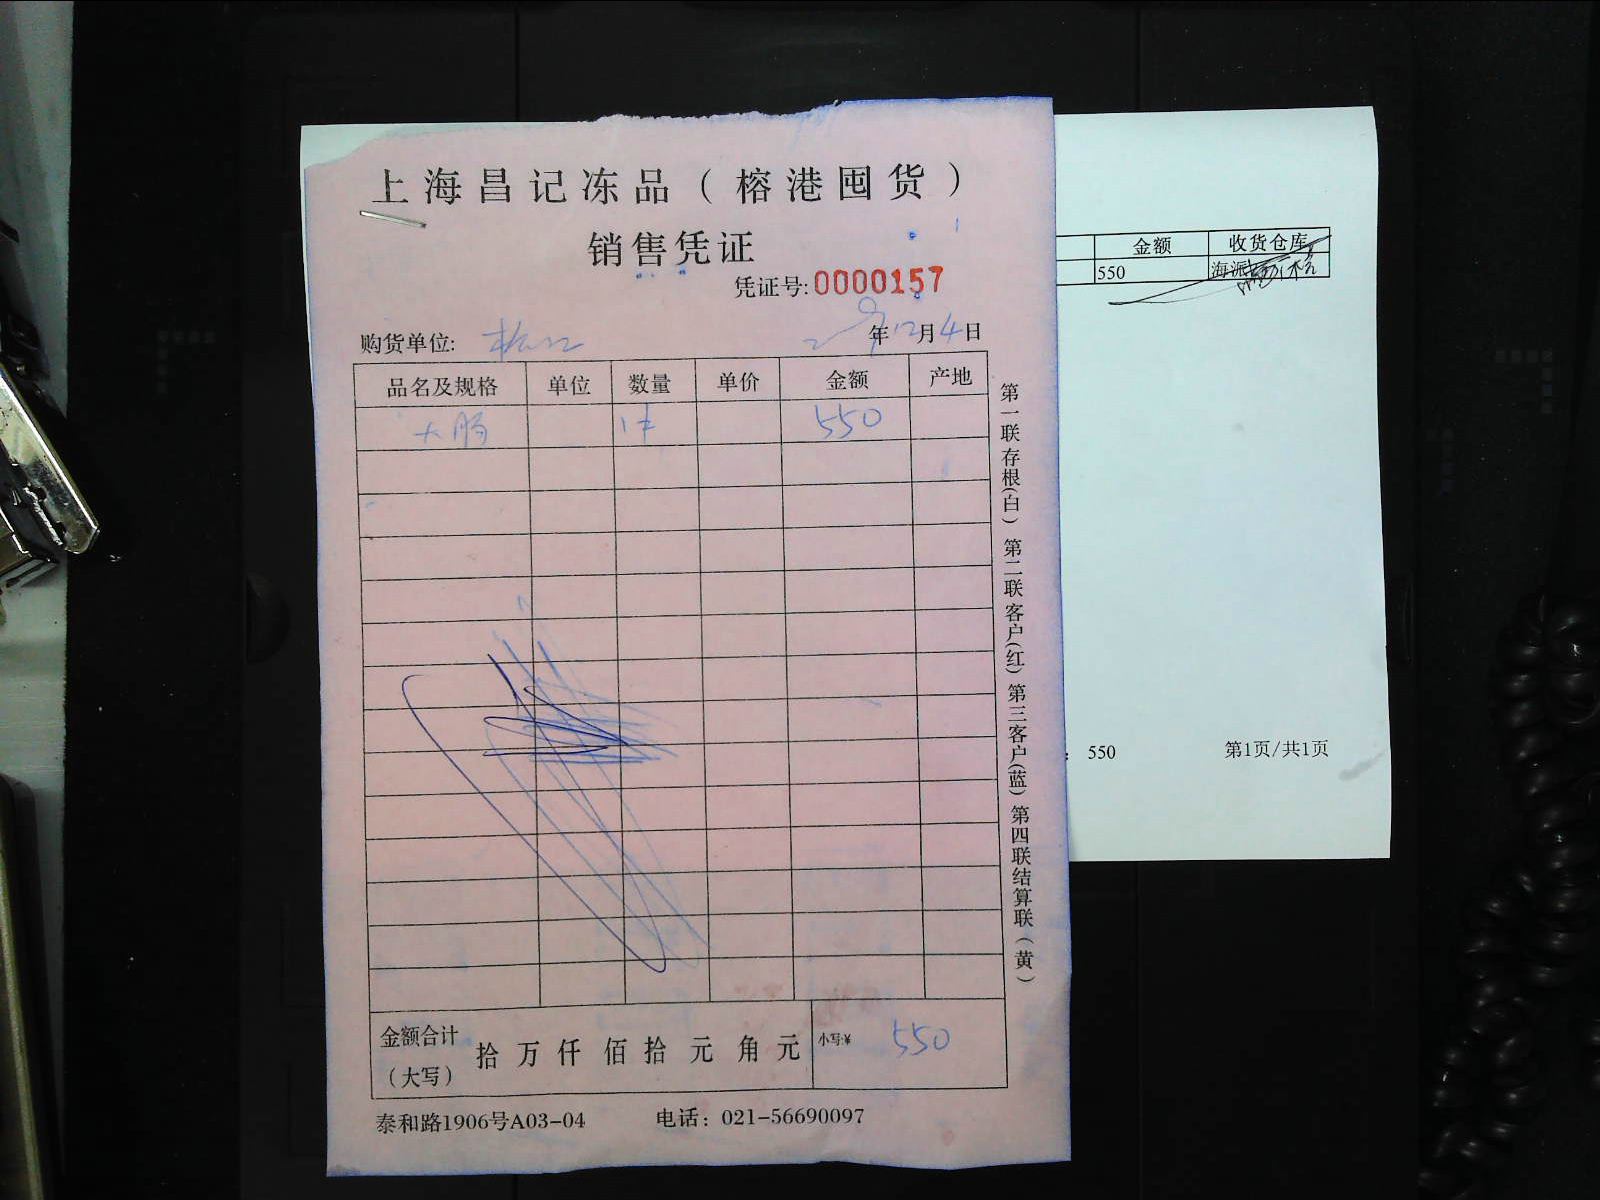 上海昌记冻品（榕港囤货）
销售凭证
凭证号:0000157
购货单位:
年12月4日
品名及规格 单位 数量 单价 金额 产地
大肠 1件 550
金额合计（大写） 拾 万 仟 佰 拾 元 角 元 小写:¥ 550
泰和路1906号A03-04 电话：021-56690097
第一联存根(白) 第二联客户(红) 第三客户(蓝) 第四联结算联(黄)
金额 收货仓库
550 海派
：550 第1页/共1页